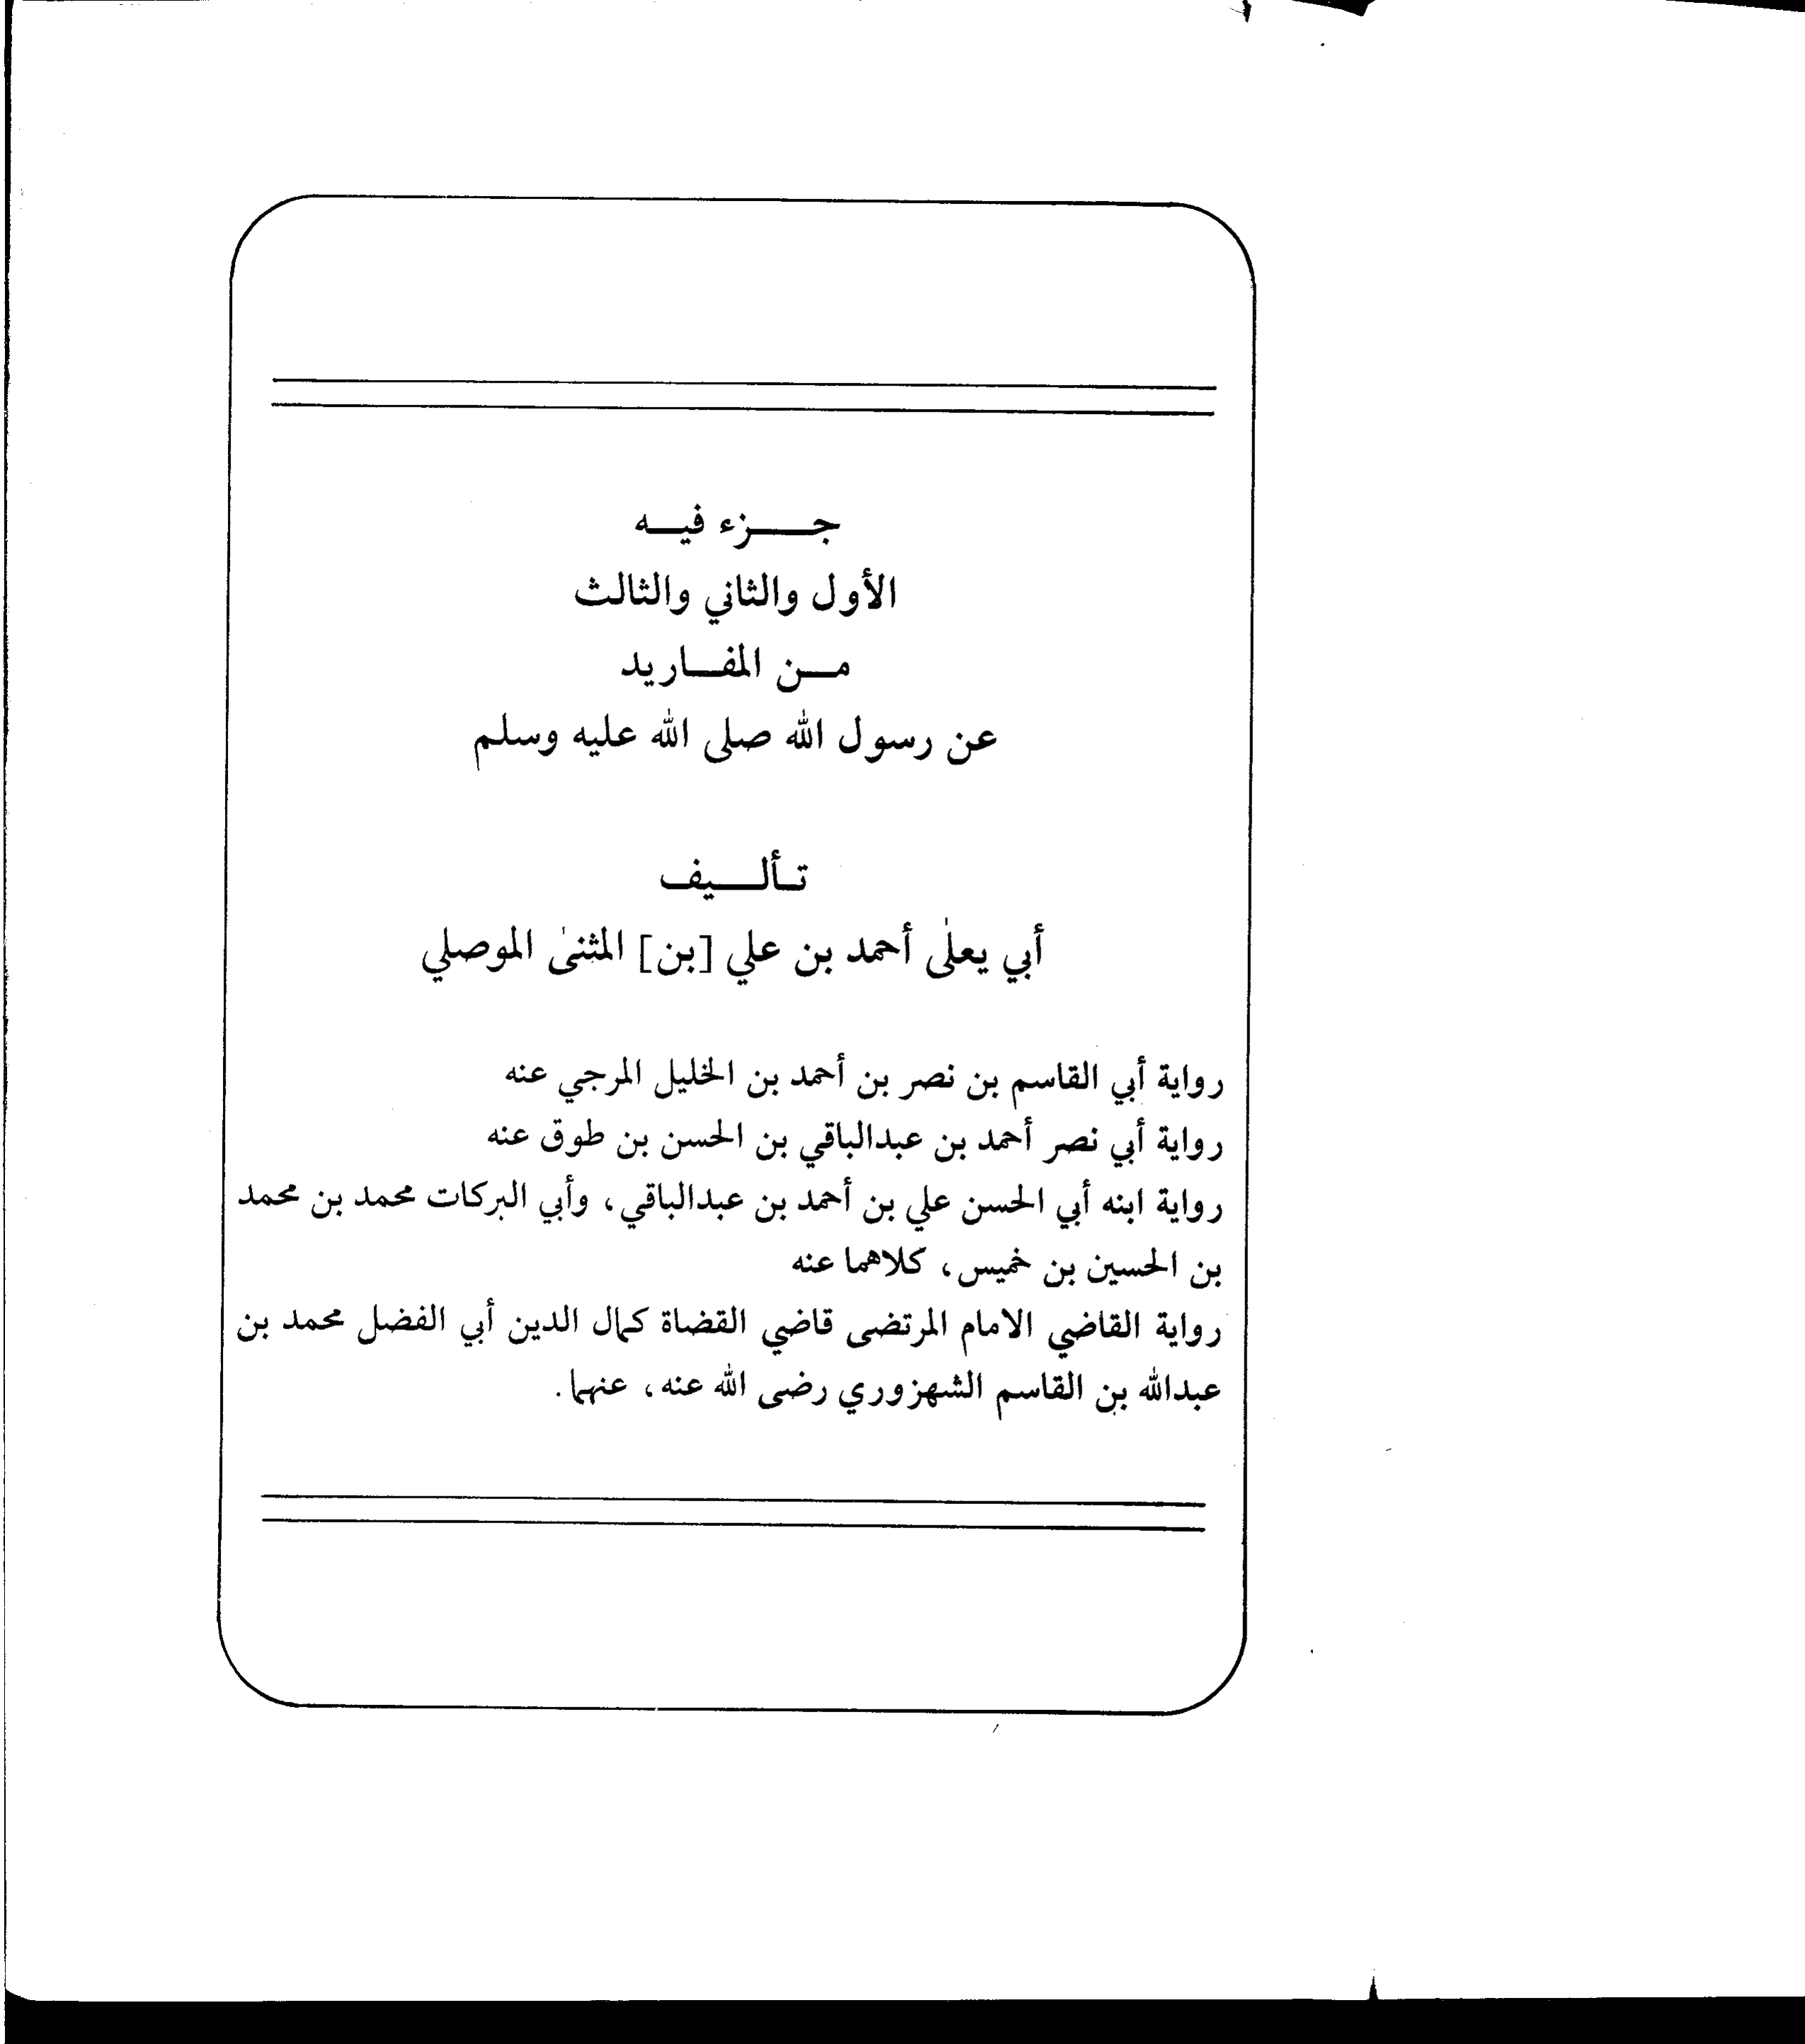 جزء فيه
الأول والثاني والثالث
من المفاريد
عن رسول الله صلى الله عليه وسلم
تأليف
أبي يعلٰى أحمد بن علي [بن] المثنىٰ الموصلي
رواية أبي القاسم بن نصر بن أحمد بن الخليل المرجي عنه
رواية أبي نصر أحمد بن عبدالباقي بن الحسن بن طوق عنه
رواية ابنه أبي الحسن علي بن أحمد بن عبدالباقي، وأبي البركات محمد بن محمد
بن الحسين بن خميس، كلاهما عنه
رواية القاضي الامام المرتضى قاضي القضاة كمال الدين أبي الفضل محمد بن
عبدالله بن القاسم الشهزوري رضى الله عنه، عنهما.